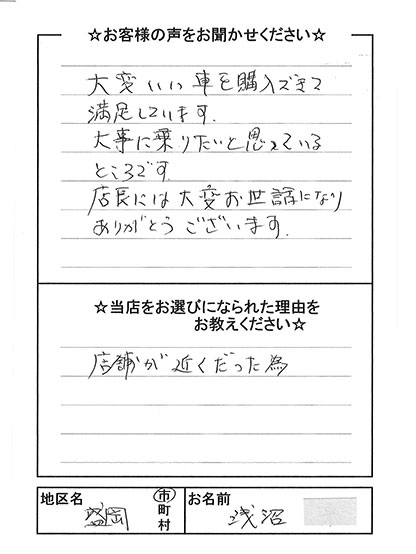 ☆お客様の声をお聞かせください☆
大変いい車を購入できて
満足しています.
大事に乗りたいと思っている
ところです.
店長には大変お世話になり
ありがとうございます.
☆当店をお選びになられた理由を
お教えください☆
店舗が近くだった為
地区名 盛岡 市町村 お名前 浅沼